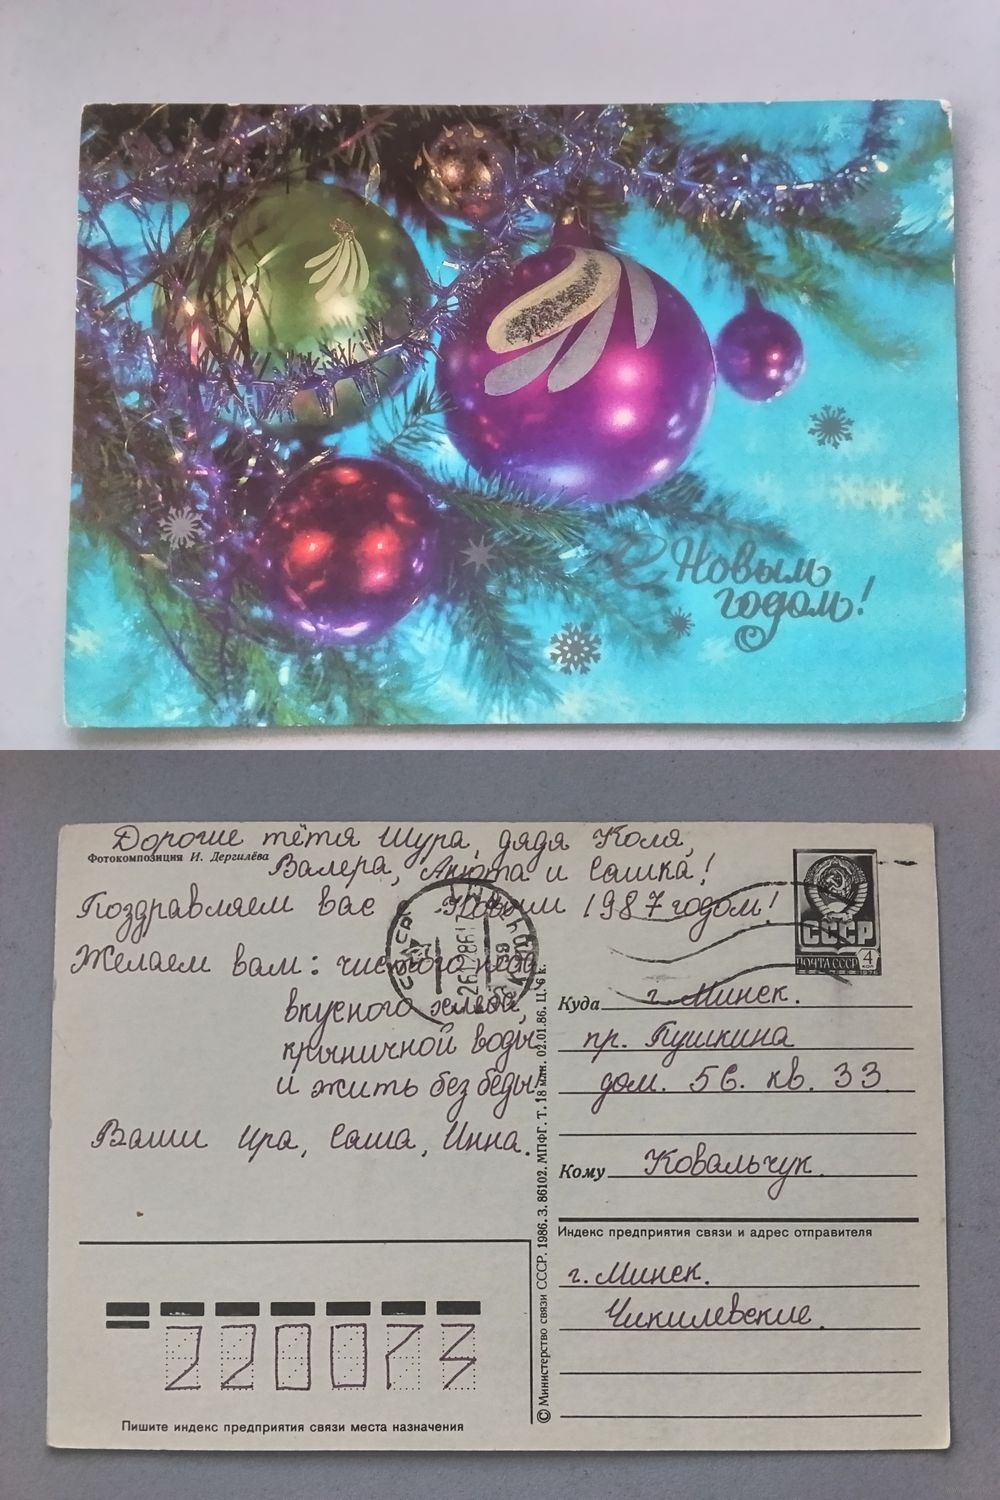 С Новым
годом!
Дорогие тётя Шура, дядя Коля,
Фотокомпозиция И. Дергилёва
Валера, Анюта и Сашка!
Поздравляем вас с Новым 1987 годом!
Желаем вам: чистого неба,
вкусного хлеба,
крыничной воды
и жить без беды.
Ваши Ира, Саша, Инна.
СССР
ПОЧТА СССР 4 КОП
1976
Куда г. Минск.
пр. Пушкина
дом. 56. кв. 33
Кому Ковальчук.
Индекс предприятия связи и адрес отправителя
г. Минск.
Чикилевские.
220073
Пишите индекс предприятия связи места назначения
© Министерство связи СССР. 1986. З. 86102. МПФГ. Т. 18 млн. 02.01.86. Ц. 6 к.